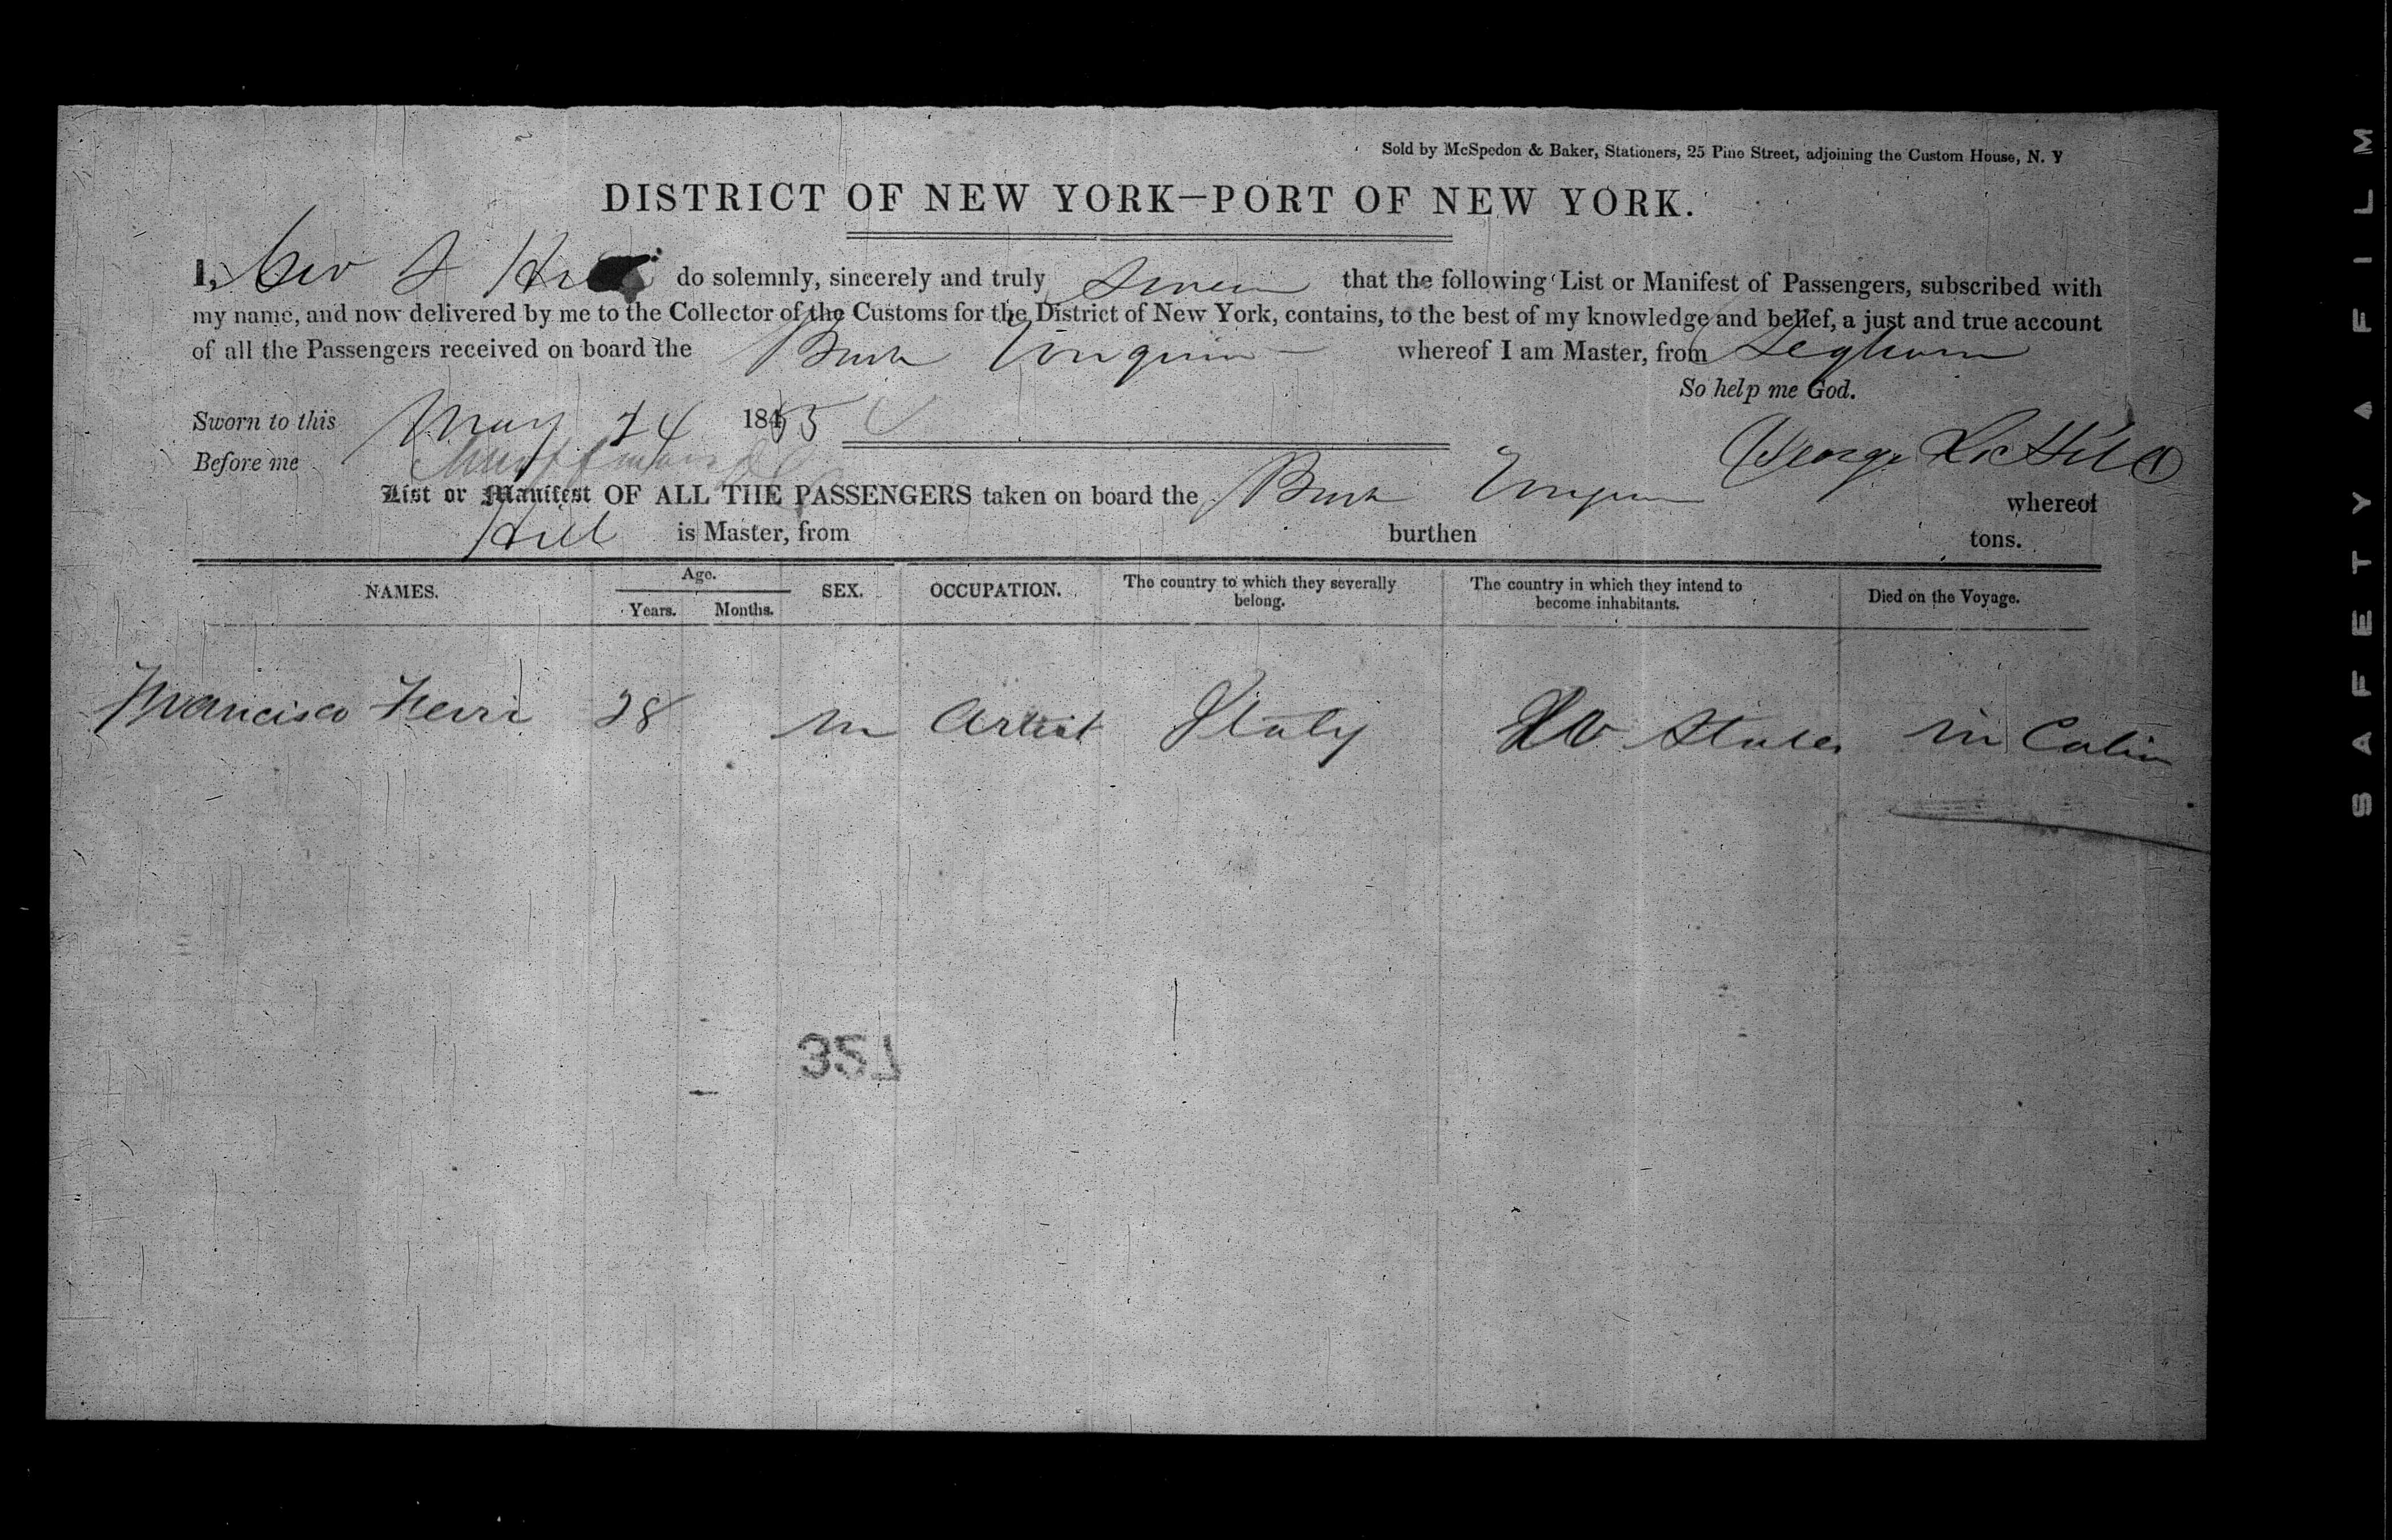 Sold by McSpedon & Baker, Stationers, 25 Pine Street, adjoining the Custom House, N. Y
DISTRICT OF NEW YORK—PORT OF NEW YORK.
I, Geo L Hill do solemnly, sincerely and truly swear that the following List or Manifest of Passengers, subscribed with
my name, and now delivered by me to the Collector of the Customs for the District of New York, contains, to the best of my knowledge and belief, a just and true account
of all the Passengers received on board the Bark whereof I am Master, from Leghorn
So help me God.
Sworn to this May 24 1855
Before me George Hill
List or Manifest OF ALL THE PASSENGERS taken on board the Bark whereof
Hill is Master, from burthen tons.
NAMES. Age. Years. Months. SEX. OCCUPATION. The country to which they severally belong. The country in which they intend to become inhabitants. Died on the Voyage.
Francisco Ferri 28 m Artist Italy U States in Cabin
357
SAFETY FILM